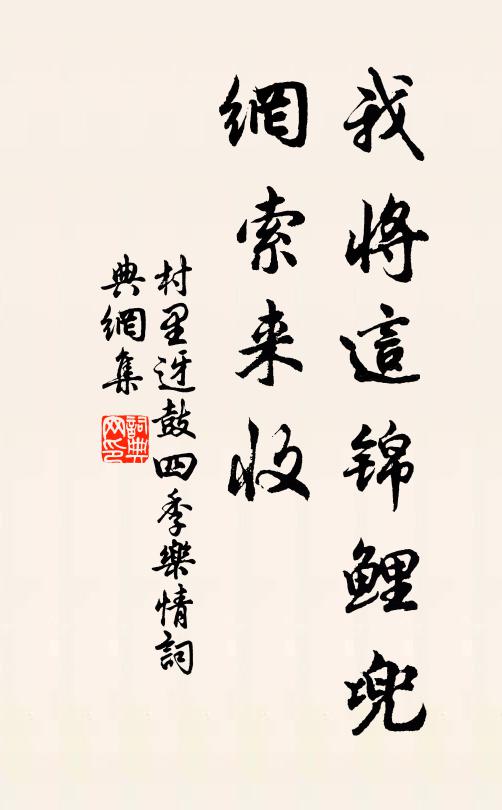 我將這锦鲤兜
網索来收
村里迓鼓四季樂情詞
典網集
詞典
网印